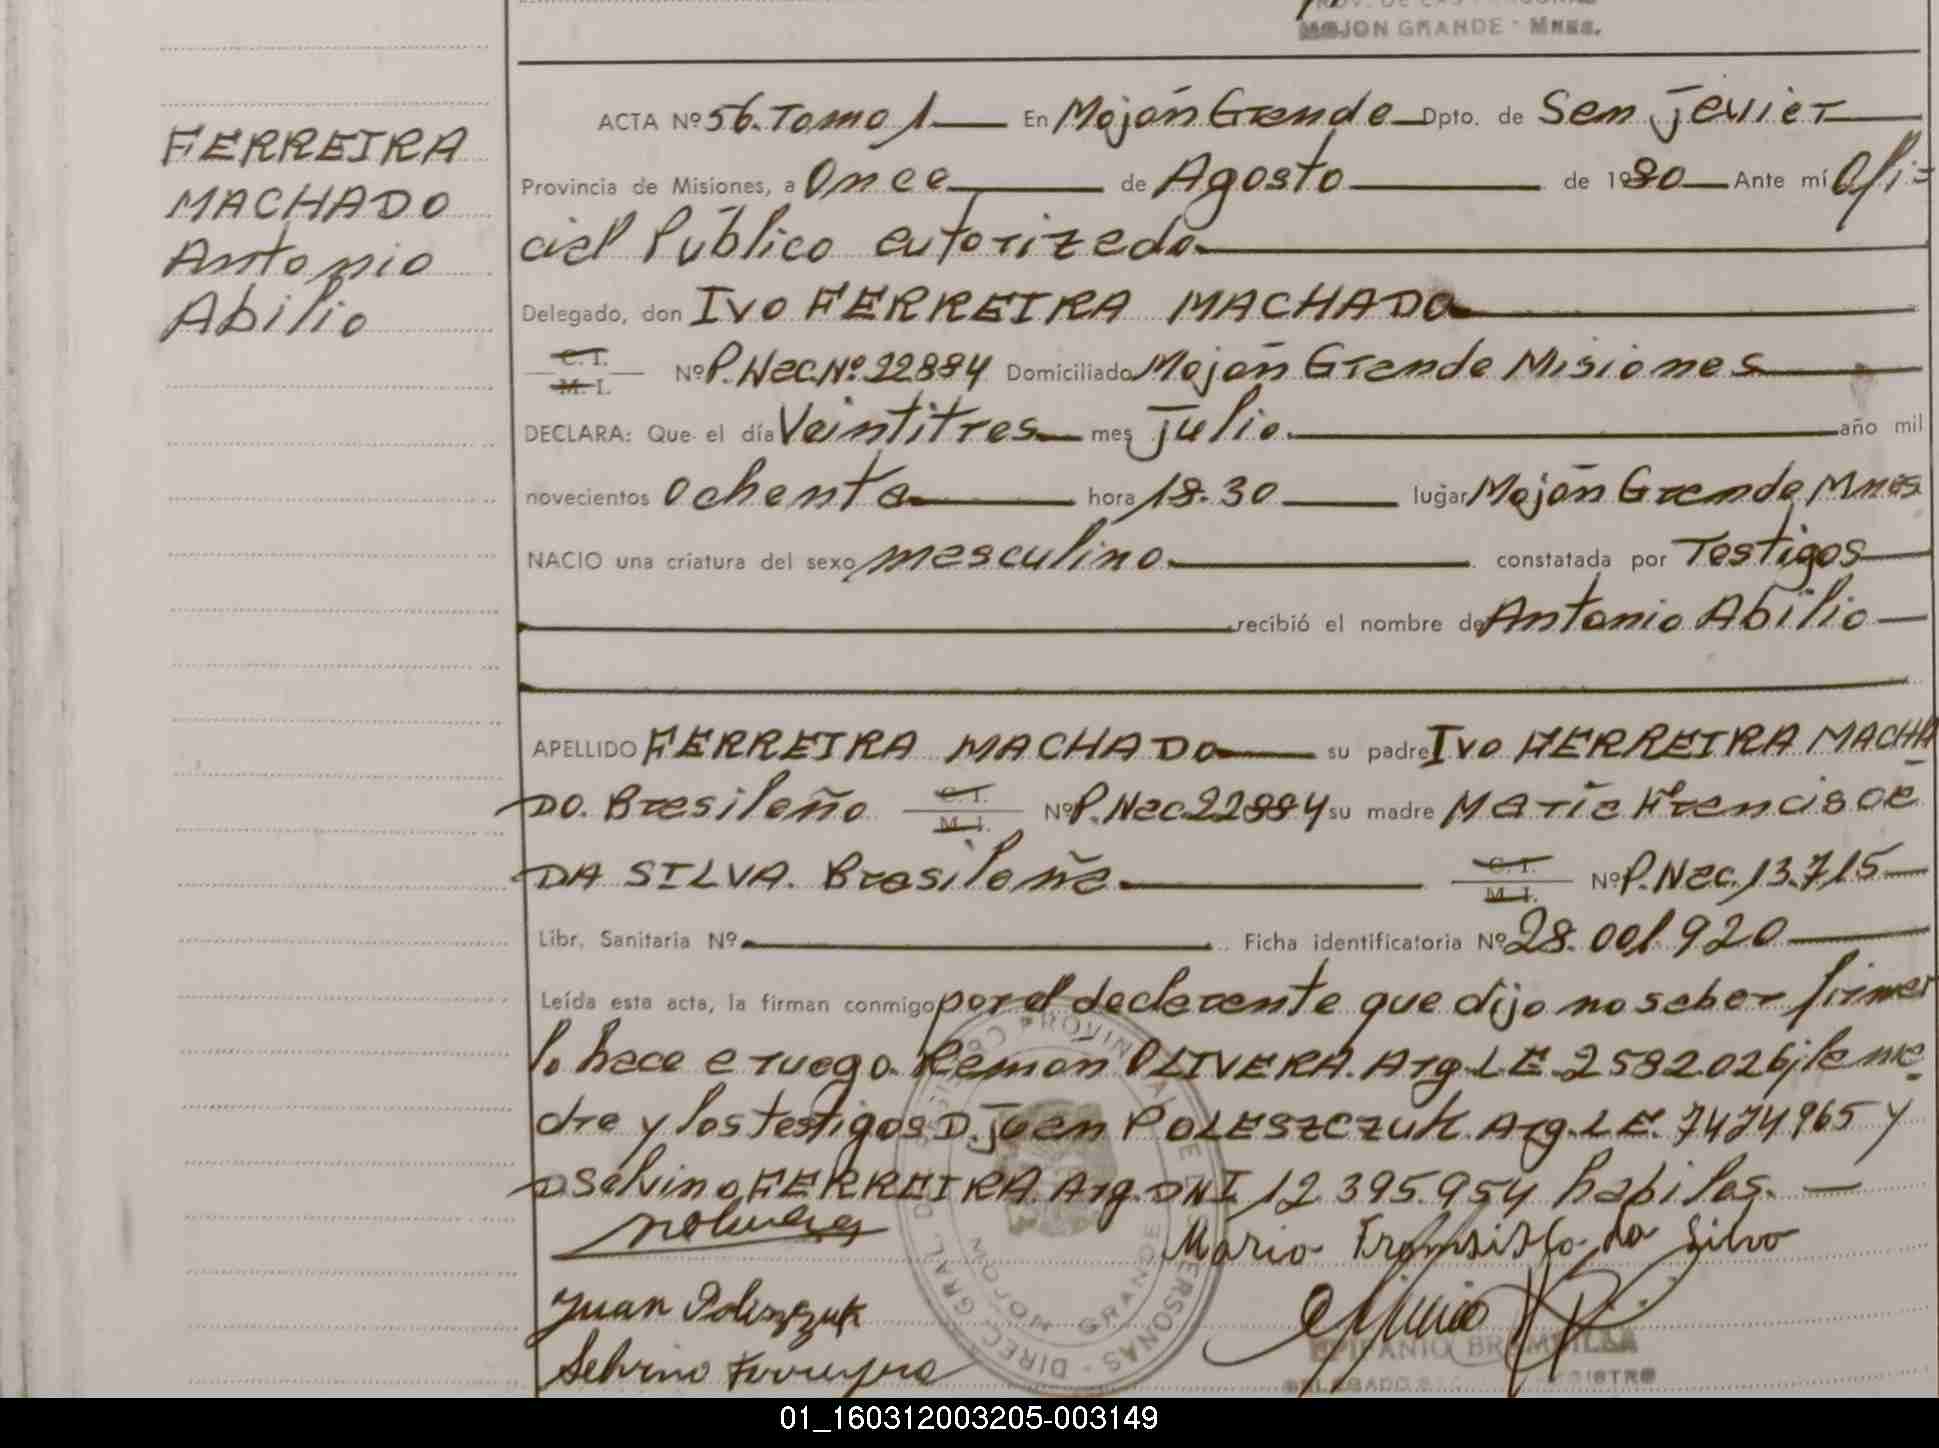 MOJON GRANDE - Mnes.
ACTA Nº 56. Tomo 1 En Mojón Grande Dpto. de San Javier
FERREIRA
MACHADO
Antonio
Abilio
Provincia de Misiones, a Once de Agosto de 1980 Ante mí Ofi=
cial Público autorizado.
Delegado, don Ivo FERREIRA MACHADO
C. I.
M. I. Nº P. Nac. Nº. 22884 Domiciliado Mojón Grande Misiones
DECLARA: Que el día Veintitres mes Julio. año mil
novecientos Ochenta hora 18.30 lugar Mojón Grande, Mnes
NACIO una criatura del sexo masculino. constatada por Testigos
recibió el nombre de Antonio Abilio
APELLIDO FERREIRA MACHADO su padre Ivo FERREIRA MACHA
DO. Brasileño C. I. M. I. Nº P. Nac. 22884 su madre María Francisca
DA SILVA. Brasileña. C. I. M. I. Nº P. Nac. 13.715
Libr. Sanitaria Nº Ficha identificatoria Nº 28.001.920
Leída esta acta, la firman conmigo por el declarante que dijo no saber firmar
lo hace a ruego. Ramon OLIVERA. Arg. L E. 2582026; la ma
dre y los testigos D. Juan POLESZCZUK. Arg. L E. 7474965 y
D Selvino FERREIRA. Arg. DNI 12.395.954 habiles.
Juan Poleszczuk
Selvino Ferreyra
EPIFANIO BRAMBILLA
DIREC. GRAL. D
PERSONAS
MOJON GRANDE
01_160312003205-003149